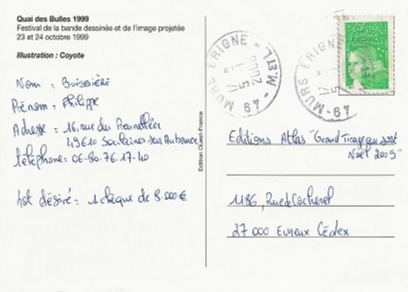 Quai des Bulles 1999
Festival de la bande dessinée et de l'image projetée
23 et 24 octobre 1999
Illustration : Coyote
Nom : Boissière
Prénom : Philippe
Adresse : 16, rue du
49610 Soulaines sur Aubance
téléphone: 06-80-76-17-40
Lot désiré : 1 chèque de 8.000 €
Edition Ouest-France
MURS ERIGNE
MURS ERIGNE
Editions Atlas "Grand Tirage
Noël 2005"
1186, Rue de Cocherel
27 000 Evreux Cédex